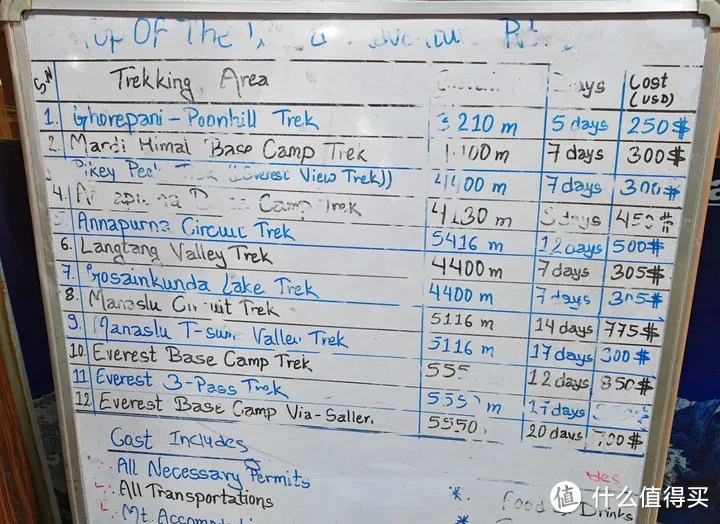 Of The
S.N Trekking Area Days Cost (USD)
1. Ghorepani-Poonhill Trek 3210 m 5 days 250$
2. Mardi Himal Base Camp Trek 7 days 300$
Pikey Trek ((Everest View Trek)) 4400 m 7 days 300$
4. Camp Trek 4130 m days 450$
5. Annapurna Circuit Trek 5416 m 12 days 500$
6. Langtang Valley Trek 4400 m 7 days 305$
7. Gosainkunda Lake Trek 4400 m 7 days 305$
8. Manaslu Circuit Trek 5116 m 14 days 775$
9. Manaslu Trek 5116 m 17 days 300$
10. Everest Base Camp Trek 555 12 days 850$
11 Everest 3-Pass Trek m 17 days
12. Everest Base Camp Via-Saller. 5550 20 days 700$
Cost Includes
All Necessary Permits
All Transportations
Mt.
Food Drinks
值 什么值得买